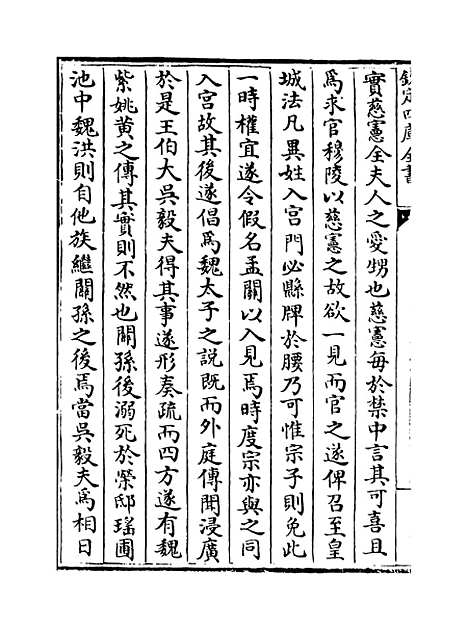 欽定四庫全書
實慈憲全夫人之愛甥也慈憲每於禁中言其可喜且
為求官穆陵以慈憲之故欲一見而官之遂俾召至皇
城法凡異姓入宫門必縣牌於腰乃可惟宗子則免此
一時權宜遂令假名孟關以入見焉時度宗亦與之同
入宫故其後遂倡為魏太子之説既而外庭傳聞浸廣
於是王伯大吳毅夫得其事遂形奏疏而四方遂有魏
紫姚黃之傳其實則不然也關孫後溺死於榮邸瑤圃
池中魏洪則自他族繼關孫之後焉當吳毅夫為相日